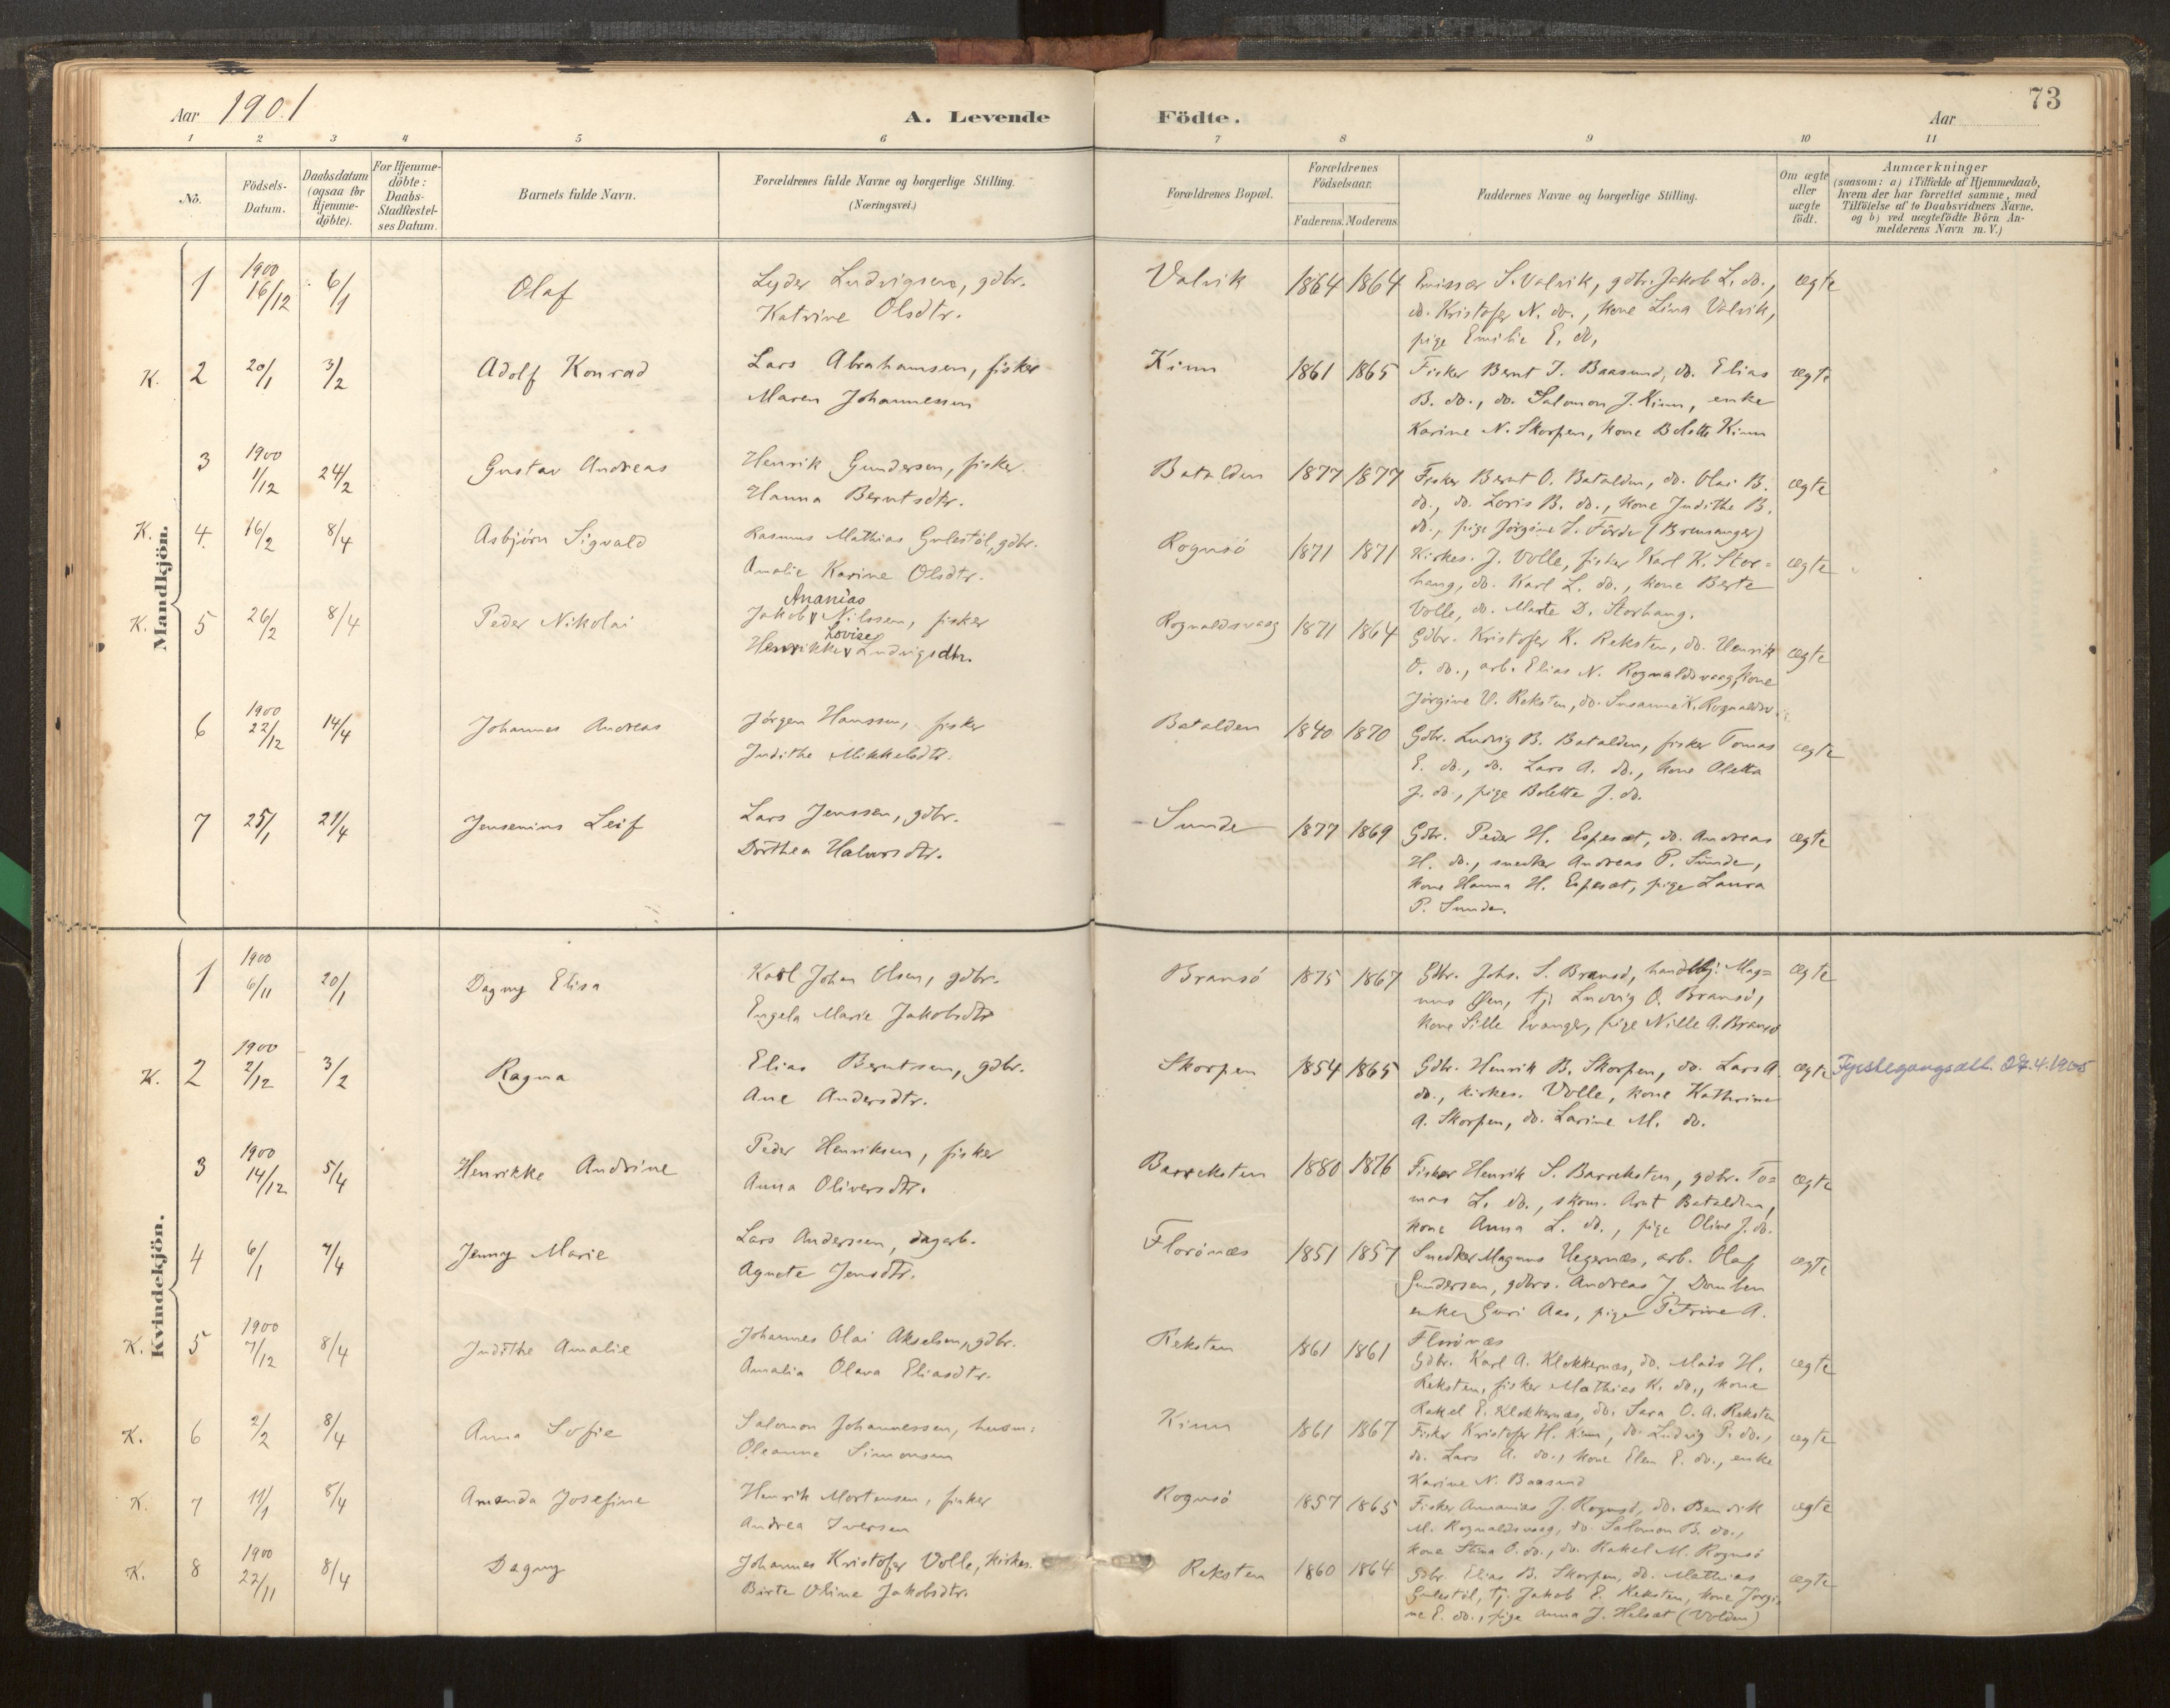 73
Aar 1901 A. Levende Födte. Aar
1 2 3 4 5 6 7 8 9 10 11
Nō.
Födsels-
Datum.
Daabsdatum
(ogsaa for
Hjemme-
döbte).
For Hjemme-
döbte:
Daabs-
Stadfæstel-
ses Datum.
Barnets fulde Navn.
Forældrenes fulde Navne og borgerlige Stilling.
(Næringsvei.)
Forældrenes Bopæl.
Forældrenes
Födselsaar.
Faderens. Moderens.
Faddernes Navne og borgerlige Stilling.
Om ægte
eller
uægte
födt.
Anmærkninger
(saasom: a) i Tilfælde af Hjemmedaab,
hvem der har forrettet samme, med
Tilföielse af to Daabsvidners Navne,
og b) ved uægtefödte Börn An-
melderens Navn m. V.)
Mandkjön.
1 1900 16/12 6/1 Olaf
Lyder Ludvigsen, gdbr.
Katrine Olsdtr.
Valvik 1864 1864
Emissær S. Valvik, gdbr. Jakob L. do.,
do. Kristofer N. do., kone Lina Valvik,
pige Emilie E. do,
ægte
K. 2 20/1 3/2 Adolf Konrad
Lars Abrahamsen, fisker
Maren Johannessen
Kinn 1861 1865
Fisker Bernt J. Baasund, do. Elias
B. do., do. Salomon J. Kinn, enke
Karine N. Skorpen, kone Bolette Kinn
ægte
3 1900 1/12 24/2 Gustav Andreas
Henrik Gundersen, fisker.
Hanna Berntsdtr.
Batalden 1877 1877
Fisker Bernt O. Batalden, do. Olai B.
do., do. Loris B. do., kone Judithe B.
do., pige Jørgine S. Förde (Bremanger)
ægte
K. 4. 16/2 8/4 Asbjörn Sigvald
Rasmus Mathias Gulestöl, gdbr.
Amalie Karine Olsdtr.
Rognsö 1871 1871
Kirkes. J. Volle, fisker Karl K. Stor=
haug, do. Karl L. do., kone Berte
Volle, do. Marte D. Storhaug.
ægte
K. 5 26/2 8/4 Peder Nikolai
Ananias
Jakob Nilssen, fisker
Lovise
Henrikke Ludvigsdtr.
Rognaldsvaag 1871 1864
Gdbr. Kristofer K. Reksten, do. Henrik
O. do., arb. Elias N. Rognaldsvaag, kone
Jörgine V. Reksten, do. Susanne K. Rognaldsv.
ægte
6 1900 22/12 14/4 Johannes Andreas
Jörgen Hanssen, fisker
Judithe Mikkelsdtr.
Batalden 1840 1870
Gdbr. Ludvig B. Batalden, fisker Tomas
E. do., do. Lars A. do., kone Oletta
J. do., pige Bolette J. do.
ægte
7 25/1 21/4 Jensenius Leif
Lars Jenssen, gdbr.
Dorthea Halvorsdtr.
Sunde 1877 1869
Gdbr. Peder H. Espeset, do. Andreas
H. do., snedker Andreas P. Sunde,
kone Hanna H. Espeset, pige Laura
P. Sunde.
ægte
Kvindekjön.
1 1900 6/11 20/1 Dagny Elisa
Karl Johan Olsen, gdbr.
Engela Marie Jakobsdtr
Bransö 1875 1867
Gdbr. Johs. S. Bransö, handelsbj. Mag=
nus Øen, tj. Ludvig O. Bransö,
kone Sille Evanger, pige Nille A. Bransö
ægte
K. 2 1900 2/12 3/2 Ragna
Elias Berntsen, gdbr.
Ane Andersdtr.
Skorpen 1854 1865
Gdbr. Henrik B. Skorpen, do. Lars A.
do., kirkes. Volle, kone Kathrine
A. Skorpen, do. Larine M. do.
ægte 27.4.1905
3 1900 14/12 5/4 Henrikke Andrine
Peder Henriksen, fisker
Anna Oliversdtr.
Barreksten 1880 1876
Fisker Henrik S. Barreksten, gdbr. To=
mas L. do., skom. Arnt Batalden,
kone Anna L. do., pige Oline J. do.
ægte
4 6/1 7/4 Jenny Marie
Lars Anderssen, dagarb.
Agnete Jensdtr.
Florönæs 1851 1857
Snedker Magnus Hegernæs, arb. Olaf
Gundersen, gdbrs. Andreas J. Domben
enke Guri Aas, pige Petrine A.
Florönæs
ægte
K. 5 1900 7/12 8/4 Judithe Amalie
Johannes Olai Akselsen, gdbr.
Amalia Olava Eliasdtr.
Reksten 1861 1861
Gdbr. Karl A. Klokkernæs, do. Mads H.
Reksten, fisker Mathias K. do., kone
Rakel E. Klokkernæs, do. Sara O. A. Reksten
ægte
K. 6 2/2 8/4 Anna Sofie
Salomon Johannessen, husm:
Oleanne Simonsen
Kinn 1861 1867
Fisker Kristofer H. Kinn, do. Ludvig P. do.,
do. Lars A. do., kone Elen E. do., enke
Karine N. Baasund
ægte
K. 7 11/1 8/4 Amanda Josefine
Henrik Mortensen, fisker
Andrea Iversen
Rognsö 1857 1865
Fisker Annanias J. Rognsö, do. Bendik
M. Rognaldsvaag, do. Salomon B. do.,
kone Stina O. do., do. Rakel M. Rognsö
ægte
K. 8 1900 22/11 8/4 Dagny
Johannes Kristofer Volle, kirkes.
Birte Oline Jakobsdtr.
Reksten 1860 1864
Gdbr. Elias B. Skorpen, do. Mathias
Gulestöl, tj. Jakob E. Reksten, kone Jörgi-
ne E. do., pige Anna J. Helset (Volden)
ægte